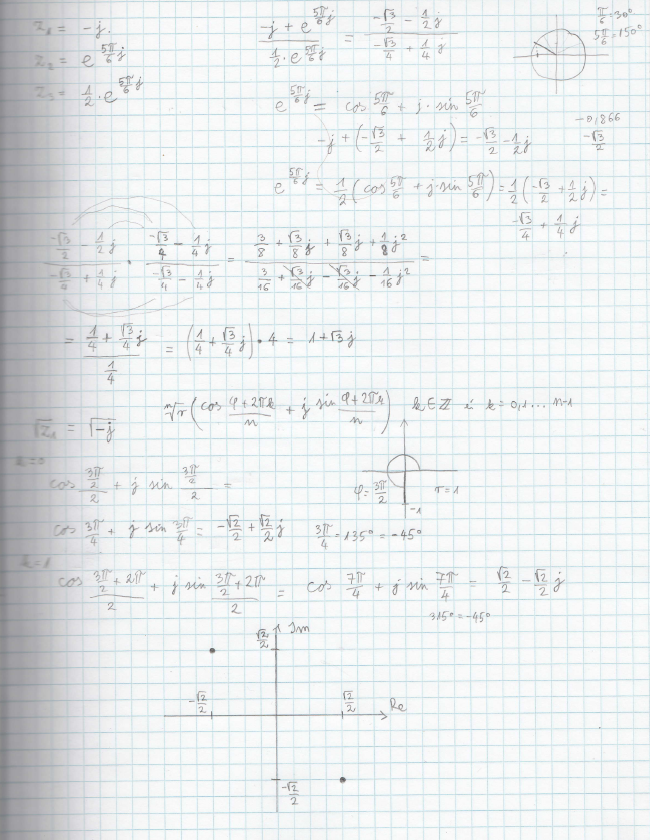 z₁ = -j.
z₂ = e^(5π/6 j)
z₃ = 1/2 · e^(5π/6 j)
(-j + e^(5π/6 j))/(1/2 · e^(5π/6 j)) = (-√3/2 - 1/2 j)/(-√3/4 + 1/4 j)
π/6 = 30°
5π/6 = 150°
e^(5π/6 j) = cos 5π/6 + j · sin 5π/6
-j + (-√3/2 + 1/2 j) = -√3/2 - 1/2 j
-0,866
-√3/2
e^(5π/6 j) = 1/2 (cos 5π/6 + j · sin 5π/6) = 1/2 (-√3/2 + 1/2 j) =
-√3/4 + 1/4 j
(-√3/2 - 1/2 j)/(-√3/4 + 1/4 j) · (-√3/4 - 1/4 j)/(-√3/4 - 1/4 j) = (3/8 + √3/8 j + √3/8 j + 1/8 j²)/(3/16 + √3/16 j - √3/16 j - 1/16 j²) =
= (1/4 + √3/4 j)/(1/4) = (1/4 + √3/4 j) · 4 = 1 + √3 j
√z₁ = √-j
ⁿ√r (cos (φ+2πk)/n + j sin (φ+2πk)/n) k ∈ ℤ i k = 0,1... n-1
k=0
cos (3π/2)/2 + j sin (3π/2)/2 =
φ = 3π/2
r = 1
-1
cos 3π/4 + j sin 3π/4 = -√2/2 + √2/2 j
3π/4 = 135° = -45°
k=1
cos (3π/2 + 2π)/2 + j sin (3π/2 + 2π)/2 = cos 7π/4 + j sin 7π/4 = √2/2 - √2/2 j
315° = -45°
Im
√2/2
-√2/2
√2/2
Re
-√2/2